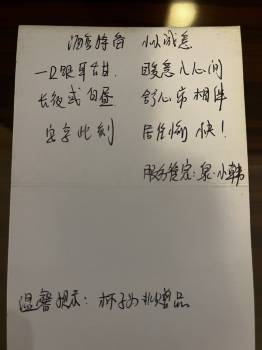 酒店特备 小小诚意
一口银耳甜. 暖意入心间
长夜或白昼 舒心常相伴
安享此刻 居住愉快!
服务管家:泉·小韩
温馨提示: 杯子为非赠品